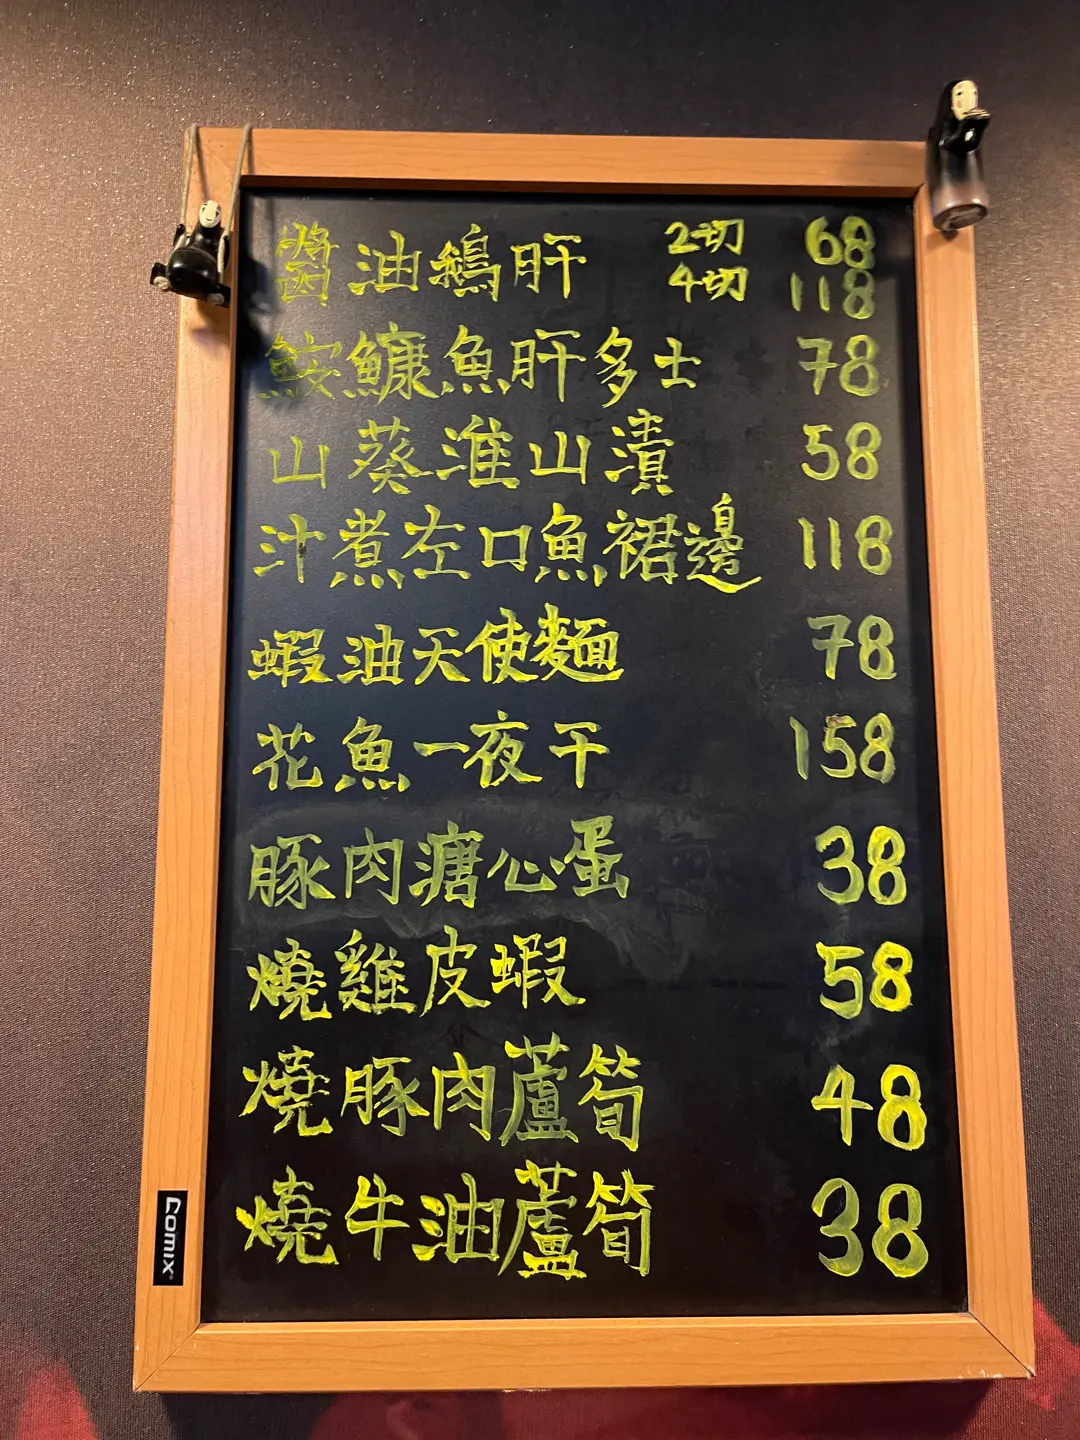 醬油鵝肝 2切 68
4切 118
鮟鱇魚肝多士 78
山葵淮山漬 58
汁煮左口魚裙邊 118
蝦油天使麵 78
花魚一夜干 158
豚肉溏心蛋 38
燒雞皮蝦 58
燒豚肉蘆筍 48
燒牛油蘆筍 38
Comix